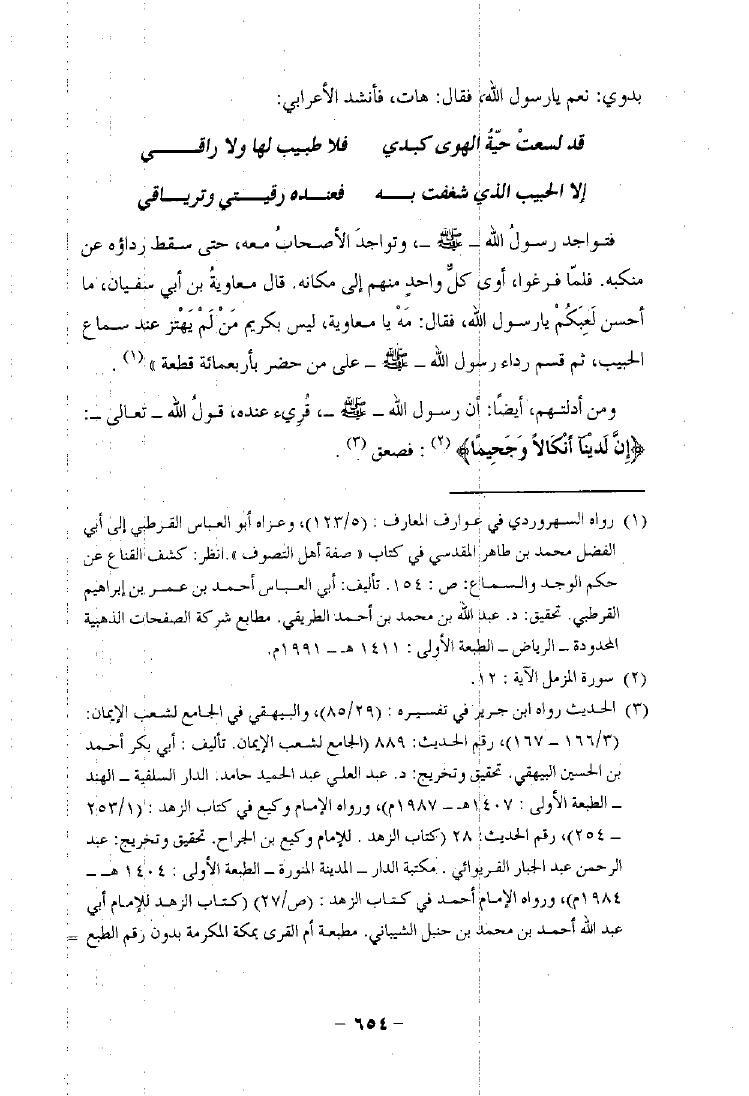 بدوي: نعم يارسول الله، فقال: هات، فأنشد الأعرابي:
قد لسعتْ حيّةُ الهوى كبدي فلا طبيب لها ولا راقــــي
إلا الحبيب الذي شغفت بــه فعنـده رقيـتي وتريـاقي
فتواجد رسولُ الله ـ ﷺ ـ، وتواجدَ الأصحابُ معه، حتى سقط رداؤه عن
منكبه. فلمّا فرغوا، أوى كلُّ واحدٍ منهم إلى مكانه. قال معاويةُ بن أبي سفيان، ما
أحسن لَعِبَكُمْ يارسول الله، فقال: مَهْ يا معاوية، ليس بكريم مَنْ لَمْ يَهْتز عند سماع
الحبيب، ثم قسم رداء رسول الله ـ ﷺ ـ على من حضر بأربعمائة قطعة » (١) .
ومن أدلتهم، أيضًا: أن رسول الله ـ ﷺ ـ، قُريء عنده، قولُ الله ـ تعالى ـ:
﴿إِنَّ لَدينَآ أَنْكَالاً وَجَحِيمًا﴾ (٢) : فصعق (٣) .
(١) رواه السهروردي في عوارف المعارف : (١٢٣/٥)، وعزاه أبو العباس القرطبي إلى أبي
الفضل محمد بن طاهر المقدسي في كتاب « صفة أهل التصوف ».انظر: كشف القناع عن
حكم الوجد والسماع: ص : ١٥٤. تأليف: أبي العباس أحمد بن عمر بن إبراهيم
القرطبي. تحقيق: د. عبد الله بن محمد بن أحمد الطريقي. مطابع شركة الصفحات الذهبية
المحدودة ـ الرياض ـ الطبعة الأولى : ١٤١١ هـ ـ ١٩٩١م.
(٢) سورة المزمل الآية : ١٢.
(٣) الحديث رواه ابن جرير في تفسيره : (٨٥/٢٩)، والبيهقي في الجامع لشعب الإيمان:
(١٦٦/٣ ـ ١٦٧)، رقم الحديث: ٨٨٩ (الجامع لشعب الإيمان. تأليف : أبي بكر أحمد
بن الحسين البيهقي. تحقيق وتخريج: د. عبد العلي عبد الحميد حامد. الدار السلفية ـ الهند
ـ الطبعة الأولى : ١٤٠٧هـ ـ ١٩٨٧م)، ورواه الإمام وكيع في كتاب الزهد : (٢٥٣/١
ـ ٢٥٤)، رقم الحديث: ٢٨ (كتاب الزهد . للإمام وكيع بن الجراح. تحقيق وتخريج: عبد
الرحمن عبد الجبار الفريوائي . مكتبة الدار ـ المدينة المنورة ـ الطبعة الأولى : ١٤٠٤ هـ ـ
١٩٨٤م)، ورواه الإمام أحمد في كتاب الزهد : (ص/٢٧) (كتاب الزهد للإمام أبي
عبد الله أحمد بن محمد بن حنبل الشيباني. مطبعة أم القرى بمكة المكرمة بدون رقم الطبع =
ـ ٦٥٤ ـ